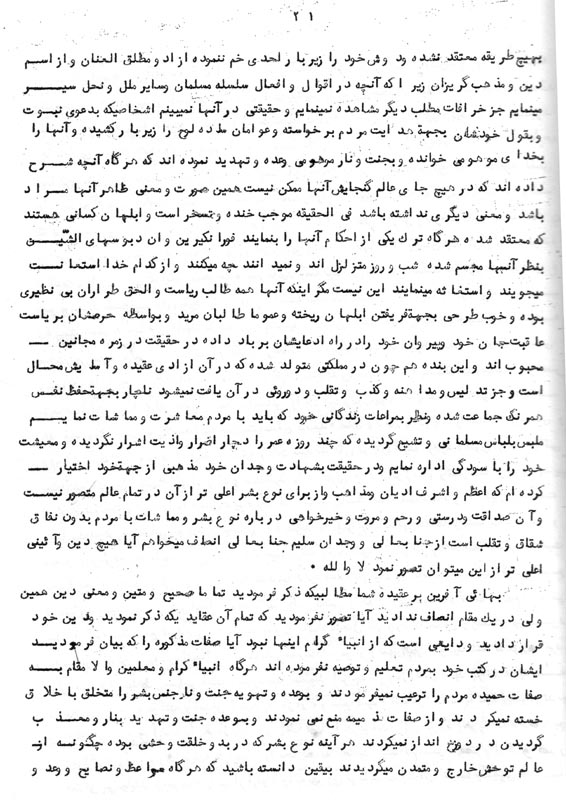 ۲۱
بهیچ طریقه معتقد نشده ودوش خود را زیر بار احدی خم ننموده ازاد و مطلق العنان و از اسم
دین و مذهب گریزان زیرا که آنچه در اقوال و افعال سلسله مسلمان و سایر ملل و نحل سیر
مینمایم جز خرافات مطلب دیگر مشاهده نمینمایم و حقیقتی در آنها نمیبینم اشخاصیکه بدعوی نبوت
و بقول خودشان بجهة هدایت مردم برخواسته و عوامان ساده لوح را زیر بار کشیده و آنها را
بخدای موهومی خوانده و بجنت و نار موهومی وعده و تهدید نموده اند که هرگاه آنچه شرح
داده اند که در هیچ جای عالم گنجایش آنها ممکن نیست همین صورت و معنی ظاهر آنها مراد
باشد و معنی دیگری نداشته باشد فی الحقیقه موجب خنده و تسخر است و ابلهان کسانی هستند
که معتقد شده هرگاه ترك یکی از احکام آنها را بنمایند فورا نکیرین و ان دبوسهای آتشین
بنظر آنها مجسم شده شب و روز متزلزل اند و نمیدانند چه میکنند و از کدام خدا استعانت
میجویند و استغاثه مینمایند این نیست مگر اینکه آنها همه طالب ریاست و الحق طراران بی نظیری
بوده و خوب طرحی بجهة فریفتن ابلهان ریخته و عموما طالبان مرید و بواسطه حرصشان بریاست
عاقبت جان خود و پیروان خود را در راه ادعایشان برباد داده در حقیقت در زمره مجانین
محبوب اند و این بنده هم چون در مملکتی متولد شده که در آن ازادی عقیده و آسایش محال
است و جز تدلیس و مداهنه و کذب و تقلب و دوروئی در آن یافت نمیشود ناچار بجهة حفظ نفس
همرنك جماعت شده و نظر بمراعات زندگانی خود که باید با مردم معاشرت و مماشات نمایم
ملبس بلباس مسلمانی و تشیع گردیده که چند روزه عمر را دچار اضرار و اذیت اشرار نگردیده و معیشت
خود را باسودگی اداره نمایم و در حقیقت بشهادت وجدان خود مذهبی از جهة خود اختیار
کرده ام که اعظم و اشرف ادیان و مذاهب و از برای نوع بشر اعلی تر از آن در تمام عالم متصور نیست
و آن صداقت و درستی و رحم و مروت و خیرخواهی درباره نوع بشر و مماشات با مردم بدون نفاق
شقاق و تقلب است از جنابعالی و وجدان سلیم جنابعالی انصاف میخواهم آیا هیچ دین و آئینی
اعلی تر از این میتوان تصور نمود لا والله .
بهائی آفرین بر عقیده شما مطالبیکه ذکر فرمودید تماما صحیح و متین و معنی دین همین
ولی در یك مقام انصاف ندادید آیا تصور نفرمودید که تمام آن عقایدیکه ذکر نمودید و دین خود
قرار دادید ودایعی است که از انبیاء گرام اینها نبود آیا صفات مذکوره را که بیان فرمودید
ایشان در کتب خود بمردم تعلیم و توصیه نفرموده اند هرگاه انبیاء کرام و معلمین والا مقام به
صفات حمیده مردم را ترغیب نمیفرمودند و بوعده و تهویه جنت و نار جنس بشر را متخلق با خلاق
خسته نمیکردند و از صفات ذمیمه منع نمی نمودند و بوعده جنت و تهدید بنار و معذب
گردیدن در دوزخ انداز نمیکردند هر آینه نوع بشر که در بدو خلقت وحشی بوده چگونه از
عالم توحش خارج و متمدن میگردیدند بیقین دانسته باشید که هرگاه مواعظ و نصایح و وعد و